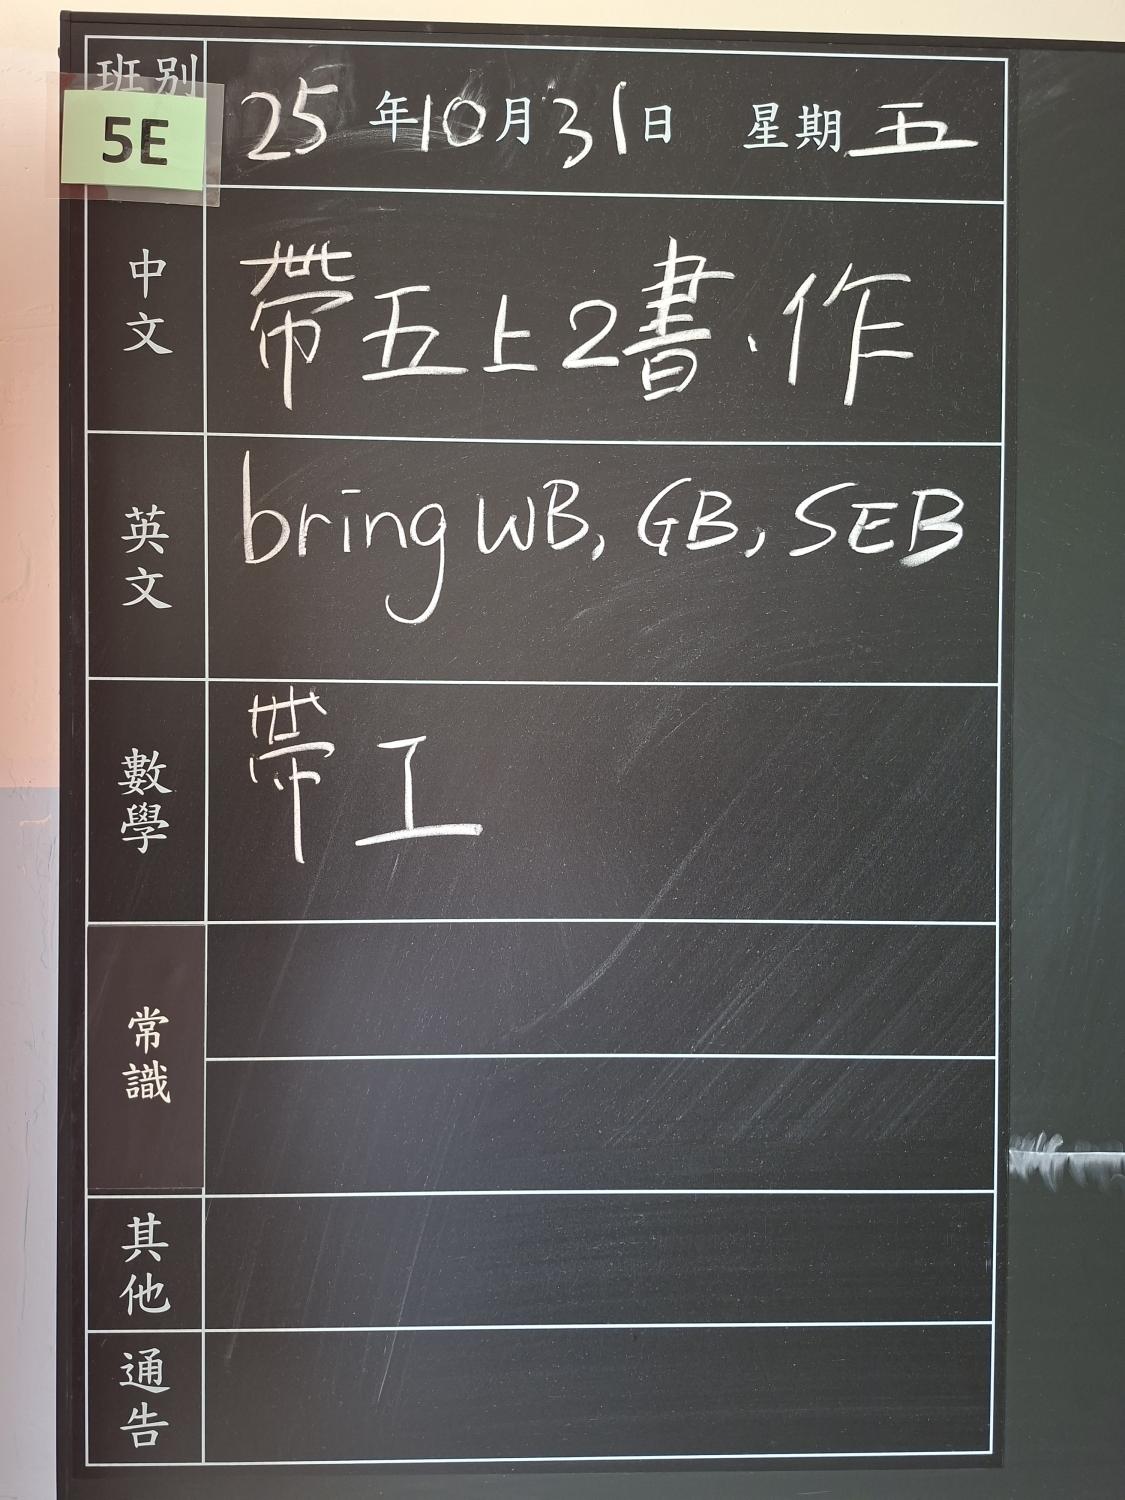 班別
5E
25年10月31日 星期五
中文
帶五上2書、作
英文
bring WB, GB, SEB
數學
帶工
常識
其他
通告